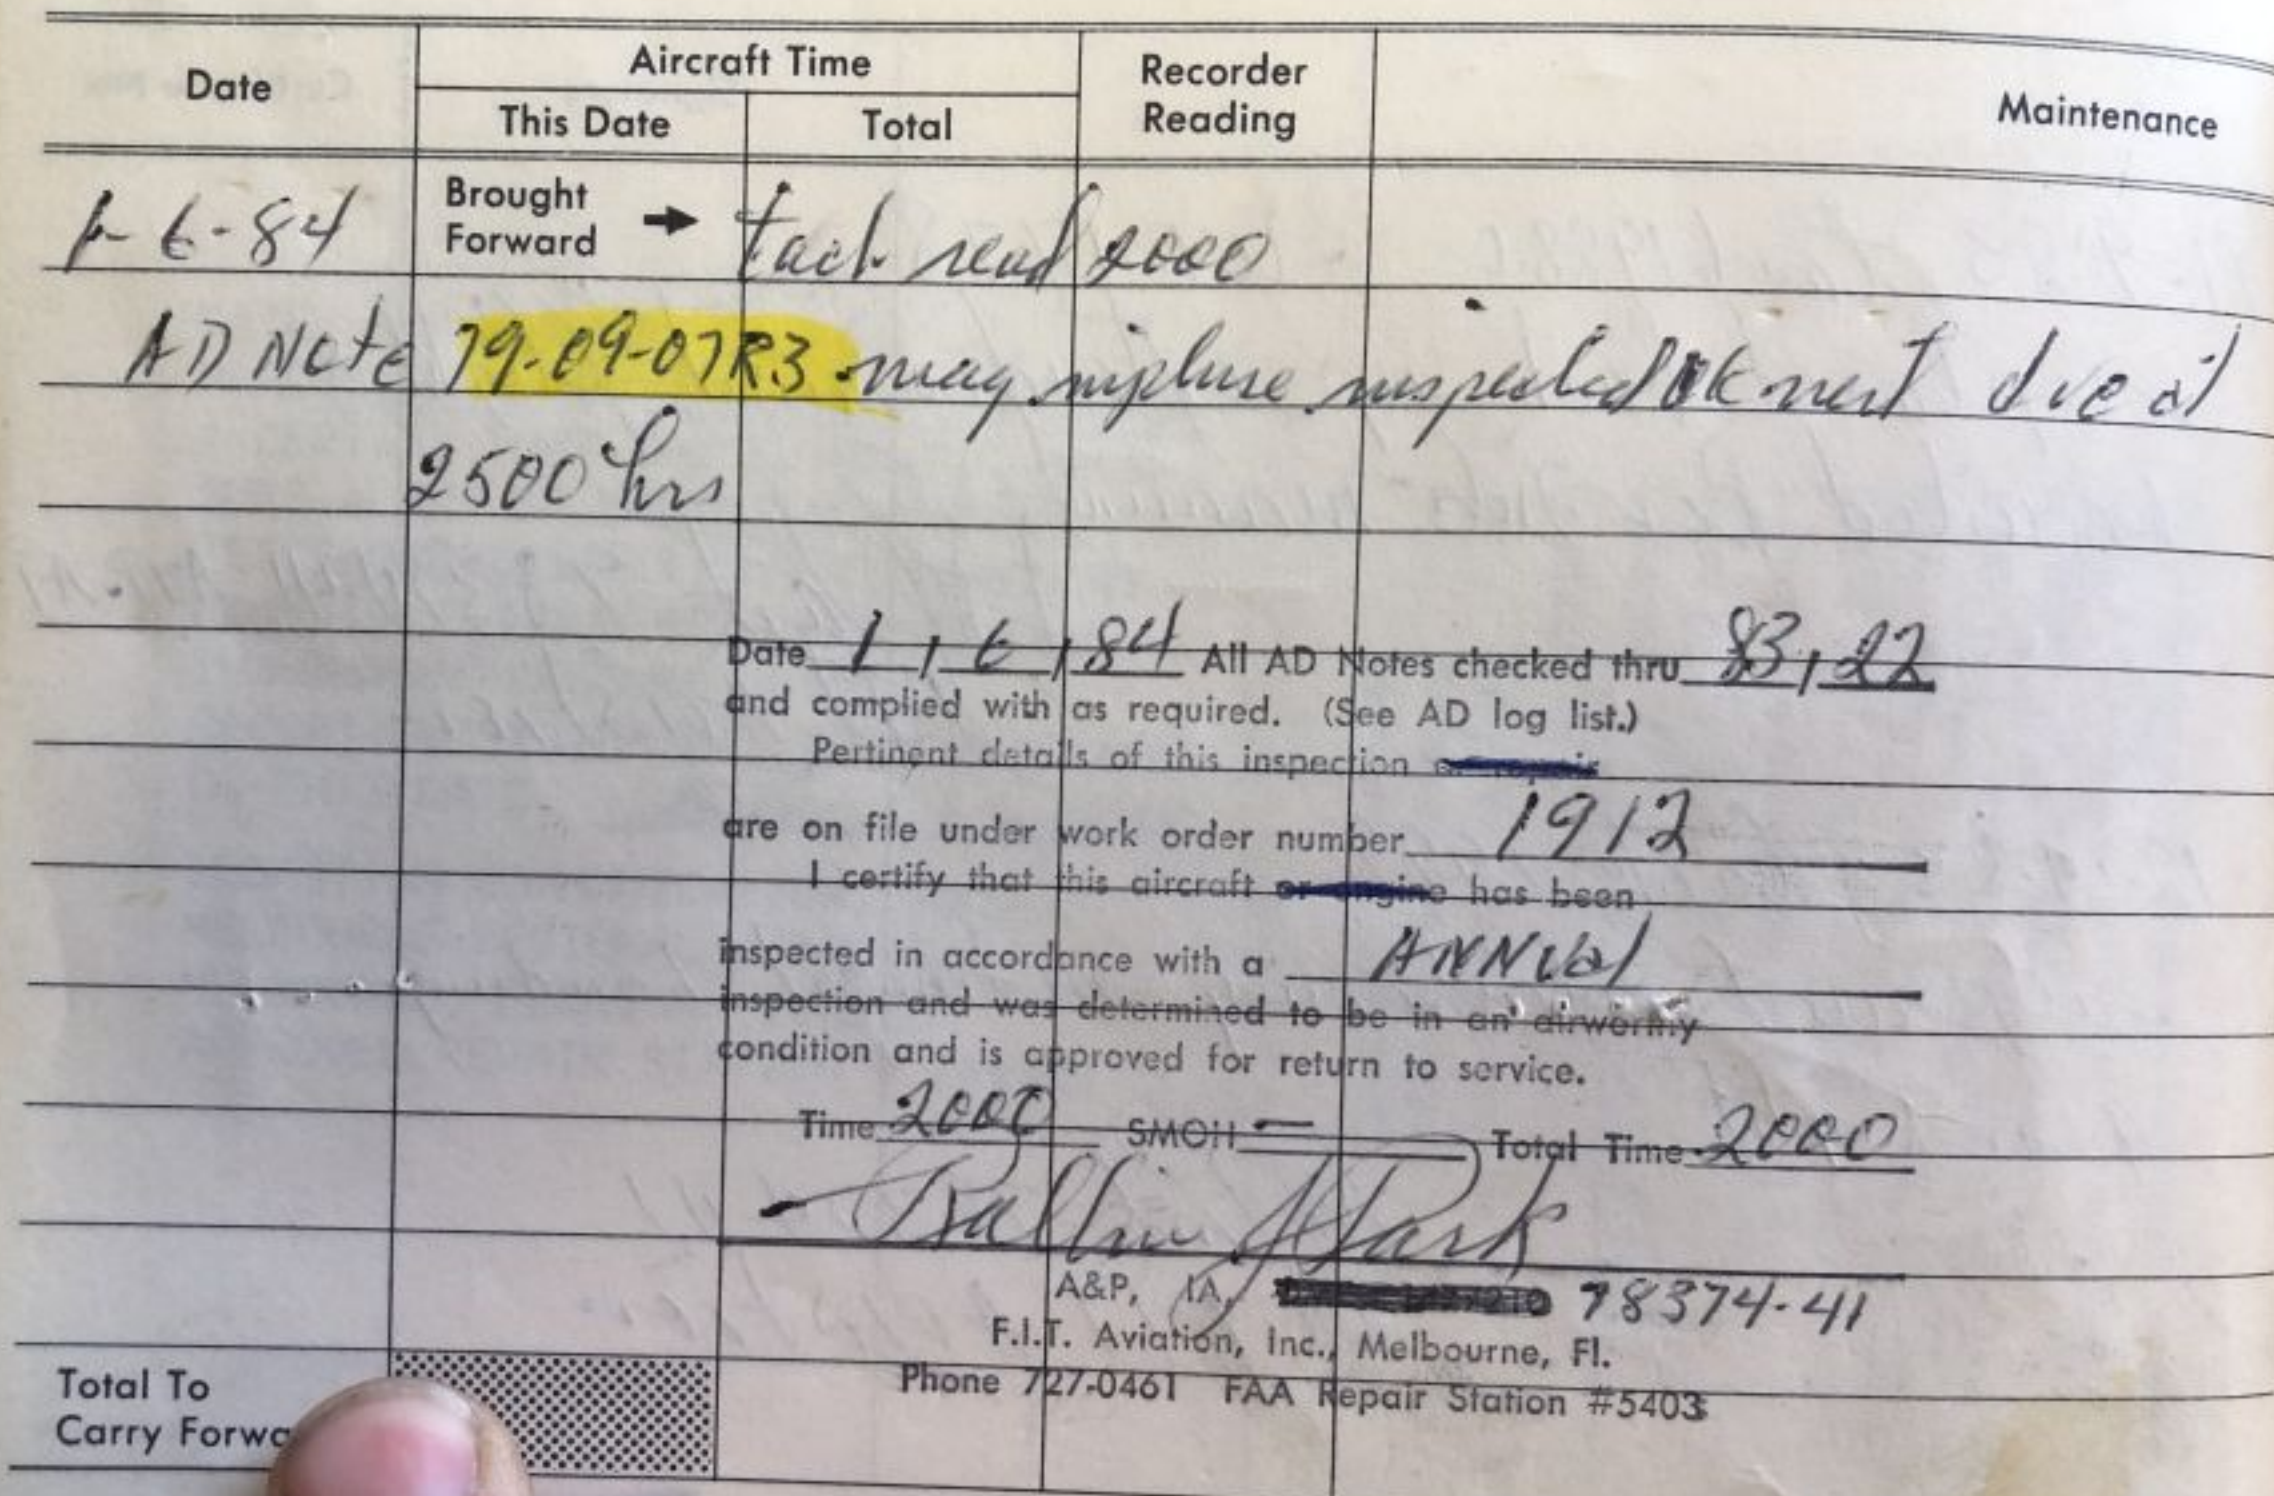 Date
Aircraft Time
This Date
Total
Recorder
Reading
Maintenance
1-6-84
Brought
Forward
tach read 2000
AD Note 79-09-07R3 mag impluse inspected OK next due at
2500 hrs
Date 1, 6, 84 All AD Notes checked thru 83, 22
and complied with as required. (See AD log list.)
Pertinent details of this inspection or repair
are on file under work order number 1912
I certify that this aircraft or engine has been
inspected in accordance with a ANNUal
inspection and was determined to be in an airworthy
condition and is approved for return to service.
Time 2000 SMOH — Total Time 2000
A&P, IA, 78374-41
F.I.T. Aviation, Inc., Melbourne, Fl.
Phone 727-0461 FAA Repair Station #5403
Total To
Carry Forwa